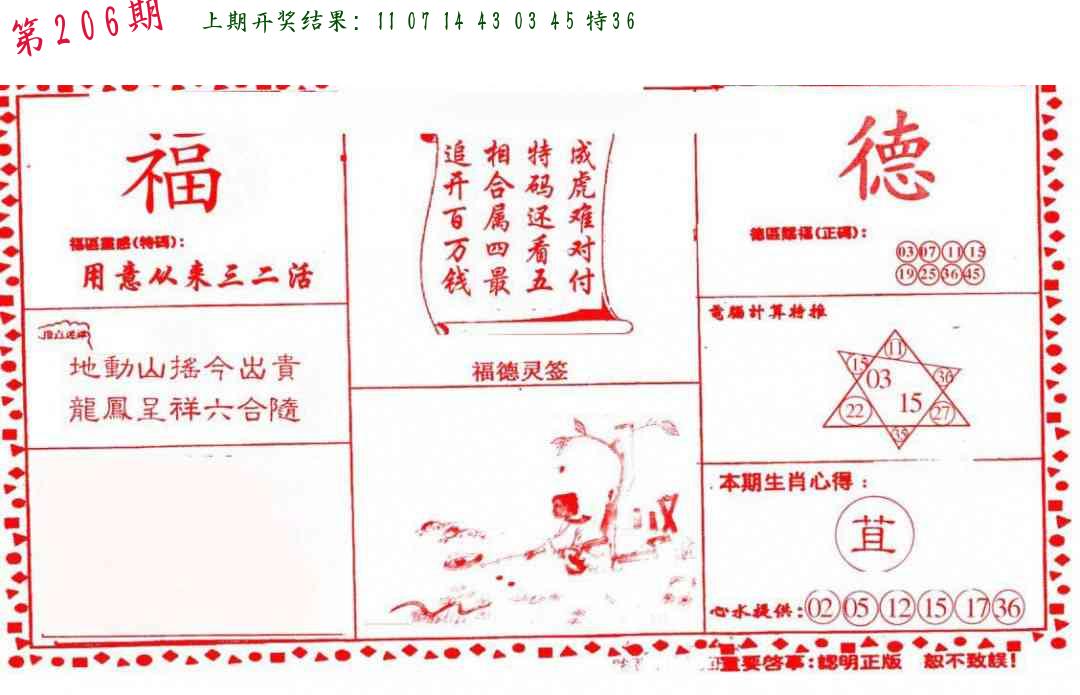 第206期
上期开奖结果：11 07 14 43 03 45 特36
福
福區靈感(特碼)：
用意从来三二活
地動山搖今出貴
龍鳳呈祥六合隨
成虎难对付
特码还看五
相合属四最
追开百万钱
福德灵签
德
德區賜福(正碼)：
03 07 11 15
19 25 36 45
電腦計算特推
11
15
36
03
15
22
27
35
本期生肖心得：
苴
心水提供：02 05 12 15 17 36
重要啓事：認明正版 恕不致誤！